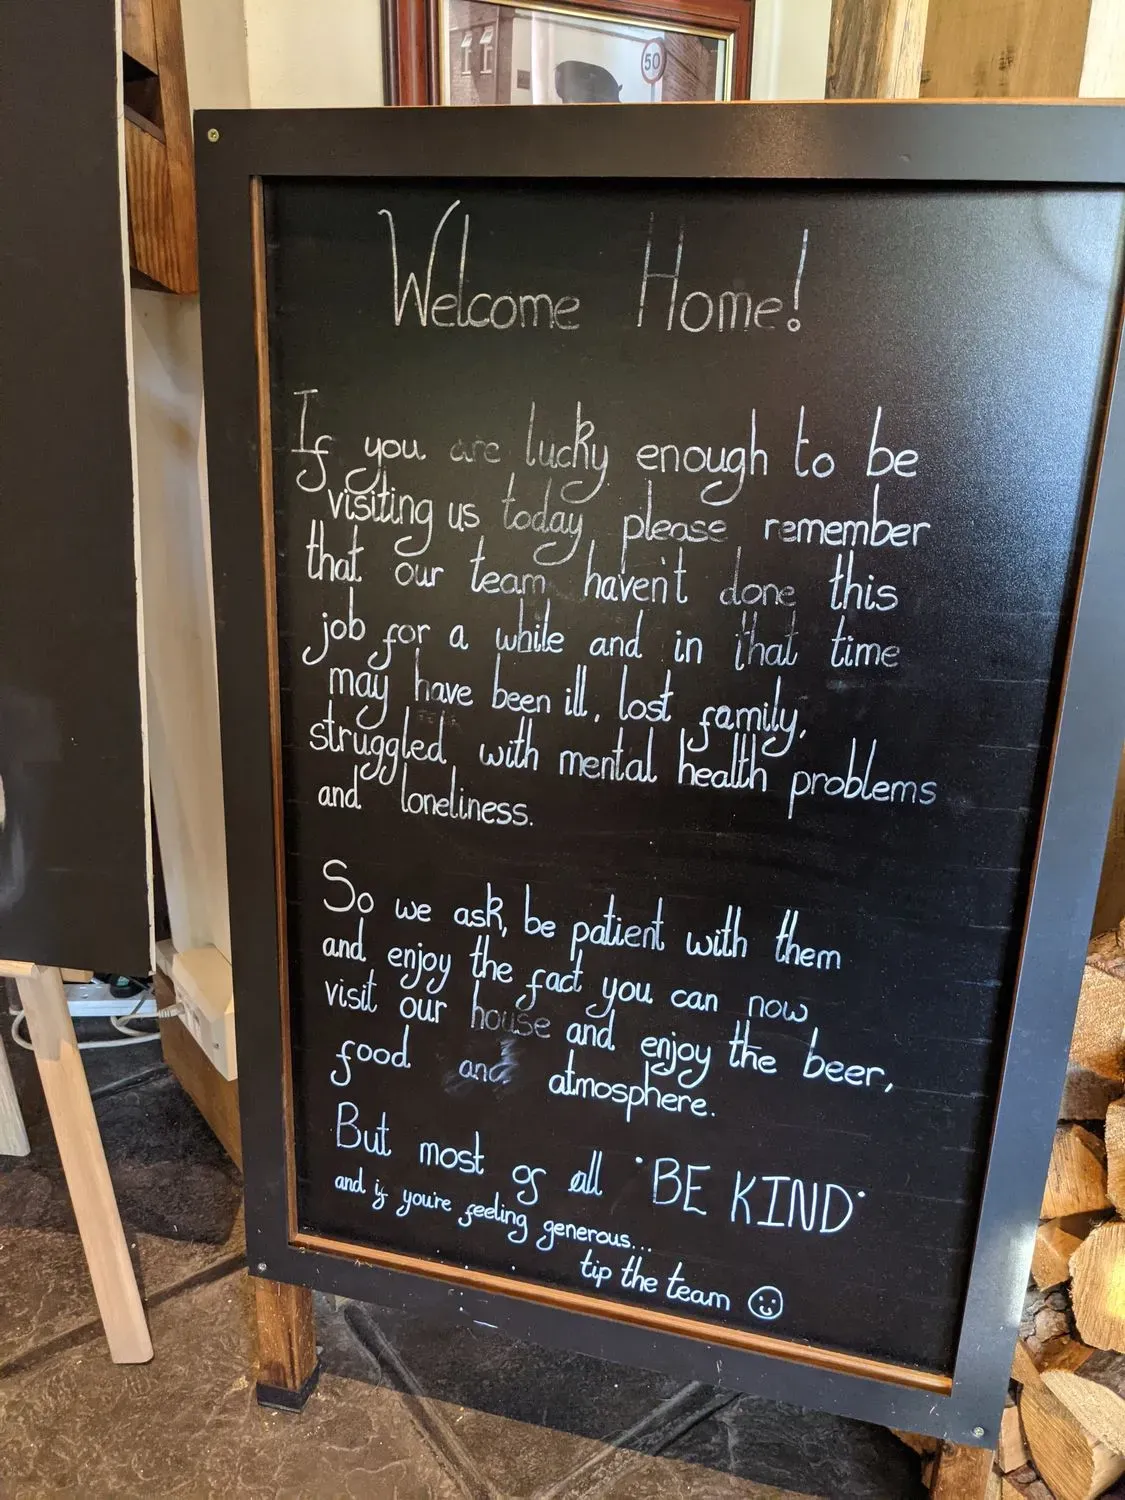 50
Welcome Home!
If you are lucky enough to be
visiting us today please remember
that our team haven't done this
job for a while and in that time
may have been ill, lost family,
struggled with mental health problems
and loneliness.
So we ask, be patient with them
and enjoy the fact you can now
visit our house and enjoy the beer,
food and atmosphere.
But most of all 'BE KIND'
and if you're feeling generous...
tip the team